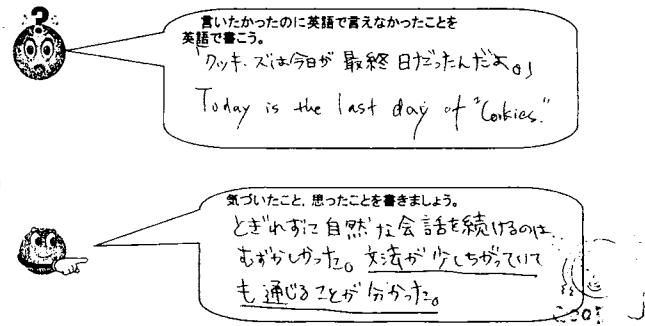 ?
言いたかったのに英語で言えなかったことを
英語で書こう。
「クッキーズは今日が最終日だったんだよ。」
Today is the last day of "Cookies."
気づいたこと，思ったことを書きましょう。
とぎれずに自然な会話を続けるのは
むずかしかった。文法が少しちがっていて
も通じることが分かった。